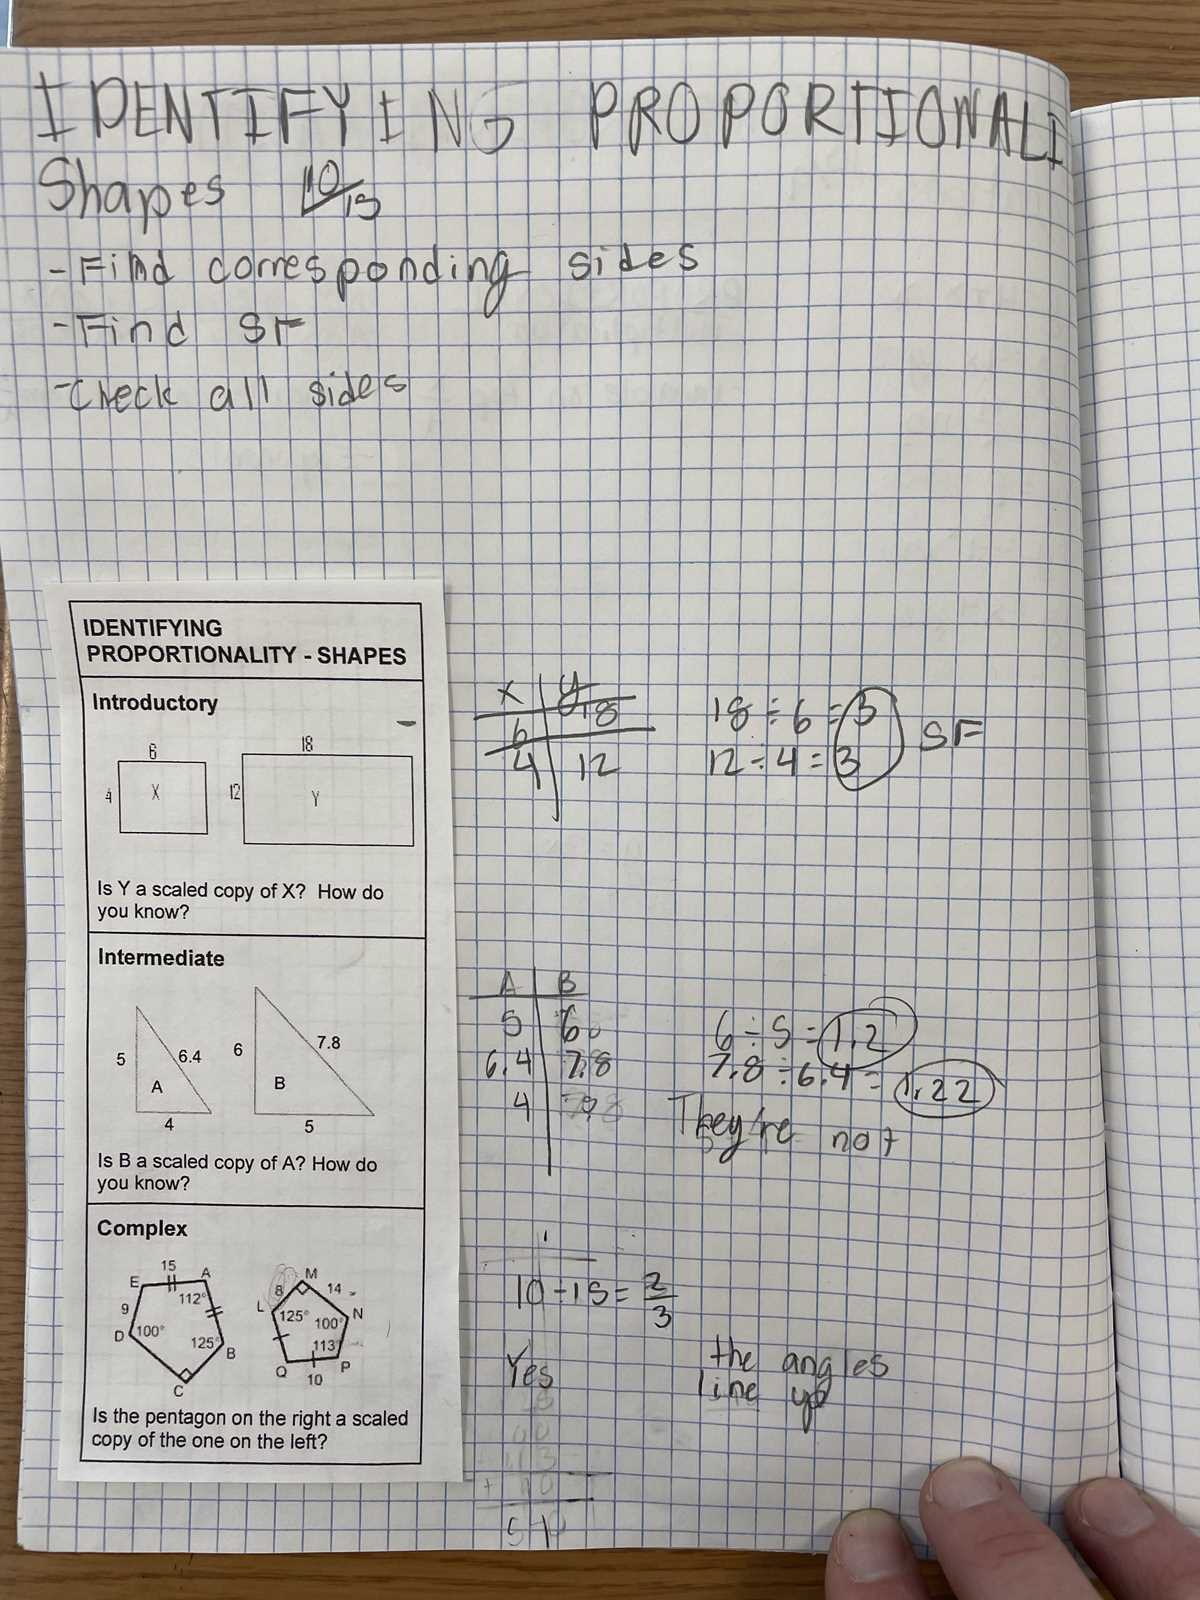 IDENTIFYING PROPORTIONALI
Shapes 10/15
- Find corresponding sides
- Find SF
- Check all sides
IDENTIFYING
PROPORTIONALITY - SHAPES
Introductory
6
4
X
18
12
Y
Is Y a scaled copy of X? How do
you know?
x y
6 18
4 12
18 ÷ 6 = 3
12 ÷ 4 = 3
SF
Intermediate
5
6.4
A
4
6
7.8
B
5
Is B a scaled copy of A? How do
you know?
A B
5 6
6.4 7.8
4
6 ÷ 5 = 1.2
7.8 ÷ 6.4 = 1.22
They're not
Complex
15
E A
112°
9
D 100°
125° B
C
M
8 14
L N
125° 100°
113°
Q P
10
Is the pentagon on the right a scaled
copy of the one on the left?
10 ÷ 15 = 2/3
Yes
the angles
line up